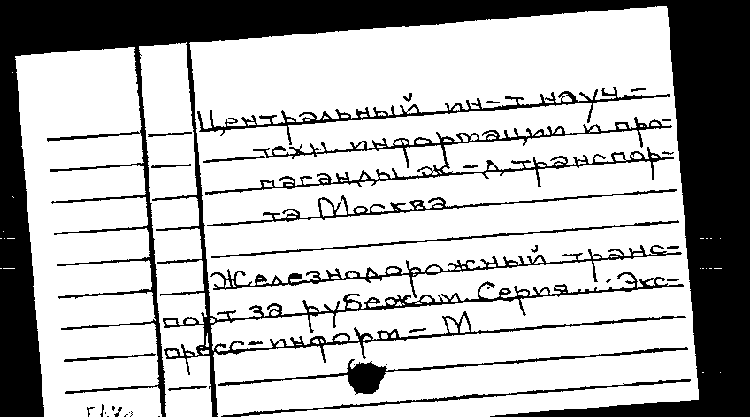 Центральный ин-т науч.-
техн. информации и про=
паганды ж.-д. транспор=
та. Москва.
Железнодорожный транс=
порт за рубежом. Серия...: Экс=
пресс-информ. - М.